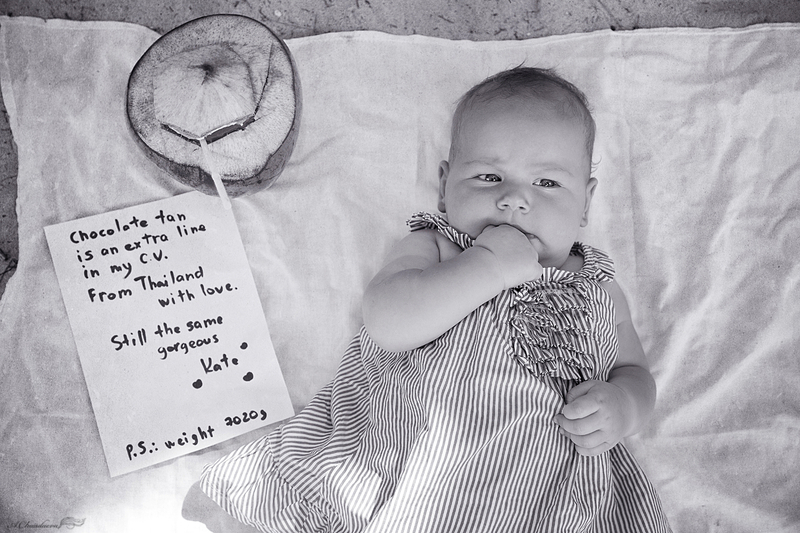 Chocolate tan
is an extra line
in my C.V.
From Thailand
with love.
Still the same
gorgeous
Kate
P.S.: weight 7020g